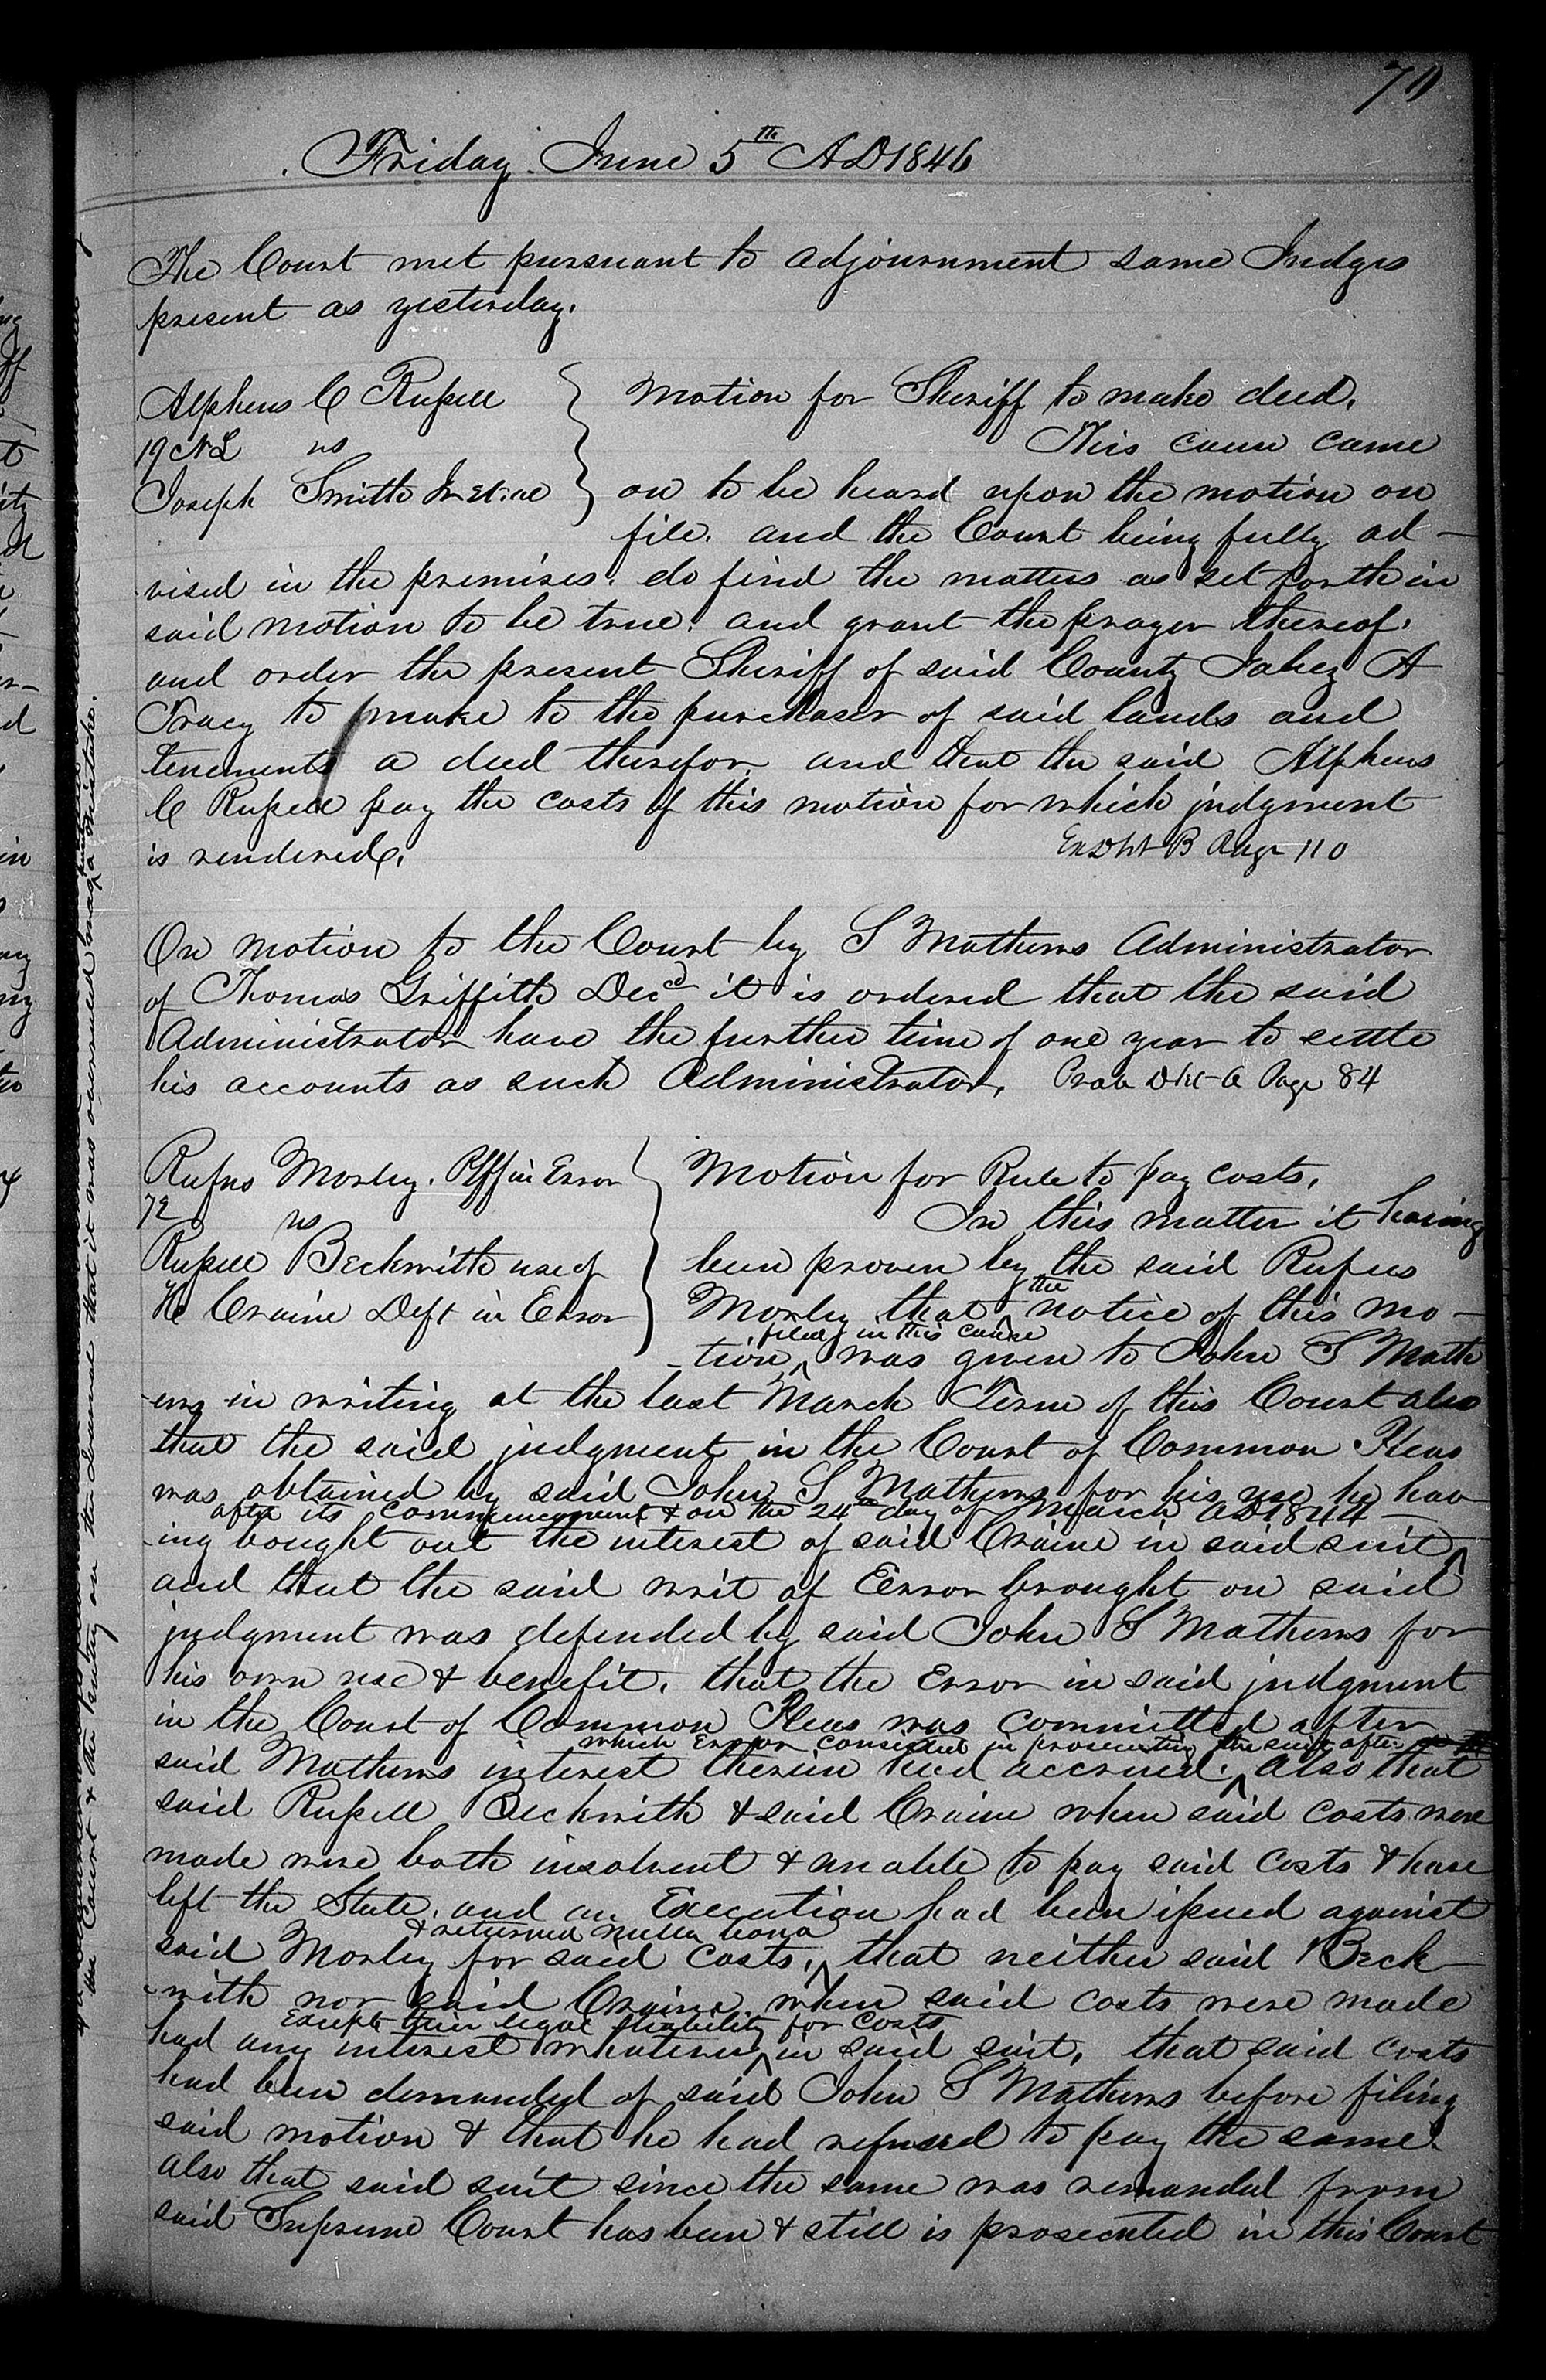 Friday June 5th AD 1846
The Court met pursuant to adjournment same Judges
present as yesterday.
Alpheus C Russell
19 NL vs
Joseph Smith Jr et al
Motion for Sheriff to make deed.
This cause came
on to be heard upon the motion on
file. and the Court being fully ad-
vised in the premises. do find the matters as set forth in
said motion to be true. and grant the prayer thereof.
and order the present Sheriff of said County Jabez A
Tracy to make to the purchaser of said lands and
tenements a deed therefor. and that the said Alpheus
C Russell pay the costs of this motion for which judgment
is rendered. Ex Dkt B Page 110
On motion to the Court by S Mathews Administrator
of Thomas Griffith Decd it is ordered that the said
Administrator have the further time of one year to settle
his accounts as such Administrator. Prob Dkt A Page 84
Rufus Morley. Plff in Error
72 vs
Russell Beckwith use of
H Craine Deft in Error
Motion for Rule to pay costs.
In this matter it having
been proven by the said Rufus
Morley that the notice of this mo-
-tion filed in this cause was given to John S Math
-ews in writing at the last March Term of this Court also
that the said judgment in the Court of Common Pleas
was obtained by said John S Mathews for his use he hav
-ing bought out the interest of said Craine in said suit after its commencement & on the 24th day of March AD 1844-
and that the said writ of Error brought on said
judgment was defended by said John S Mathews for
his own use & benefit. that the Error in said judgment
in the Court of Common Pleas was committed after
said Mathews interest therein had accrued. which Error consisted in prosecuting the suit after also that
said Russell Beckwith & said Craine when said costs were
made were both insolvent & unable to pay said costs & have
left the State. and an Execution had been issued against
said Morley for said costs, & returned nulla bona that neither said Beck
-with nor said Craine when said costs were made
had any interest whatever Except their legal liability for costs in said suit. that said costs
had been demanded of said John S Mathews before filing
said motion & that he had refused to pay the same
also that said suit since the same was remanded from
said Supreme Court has been & still is prosecuted in this Court
the Court & the entry on the Journal that it was overruled was a mistake.